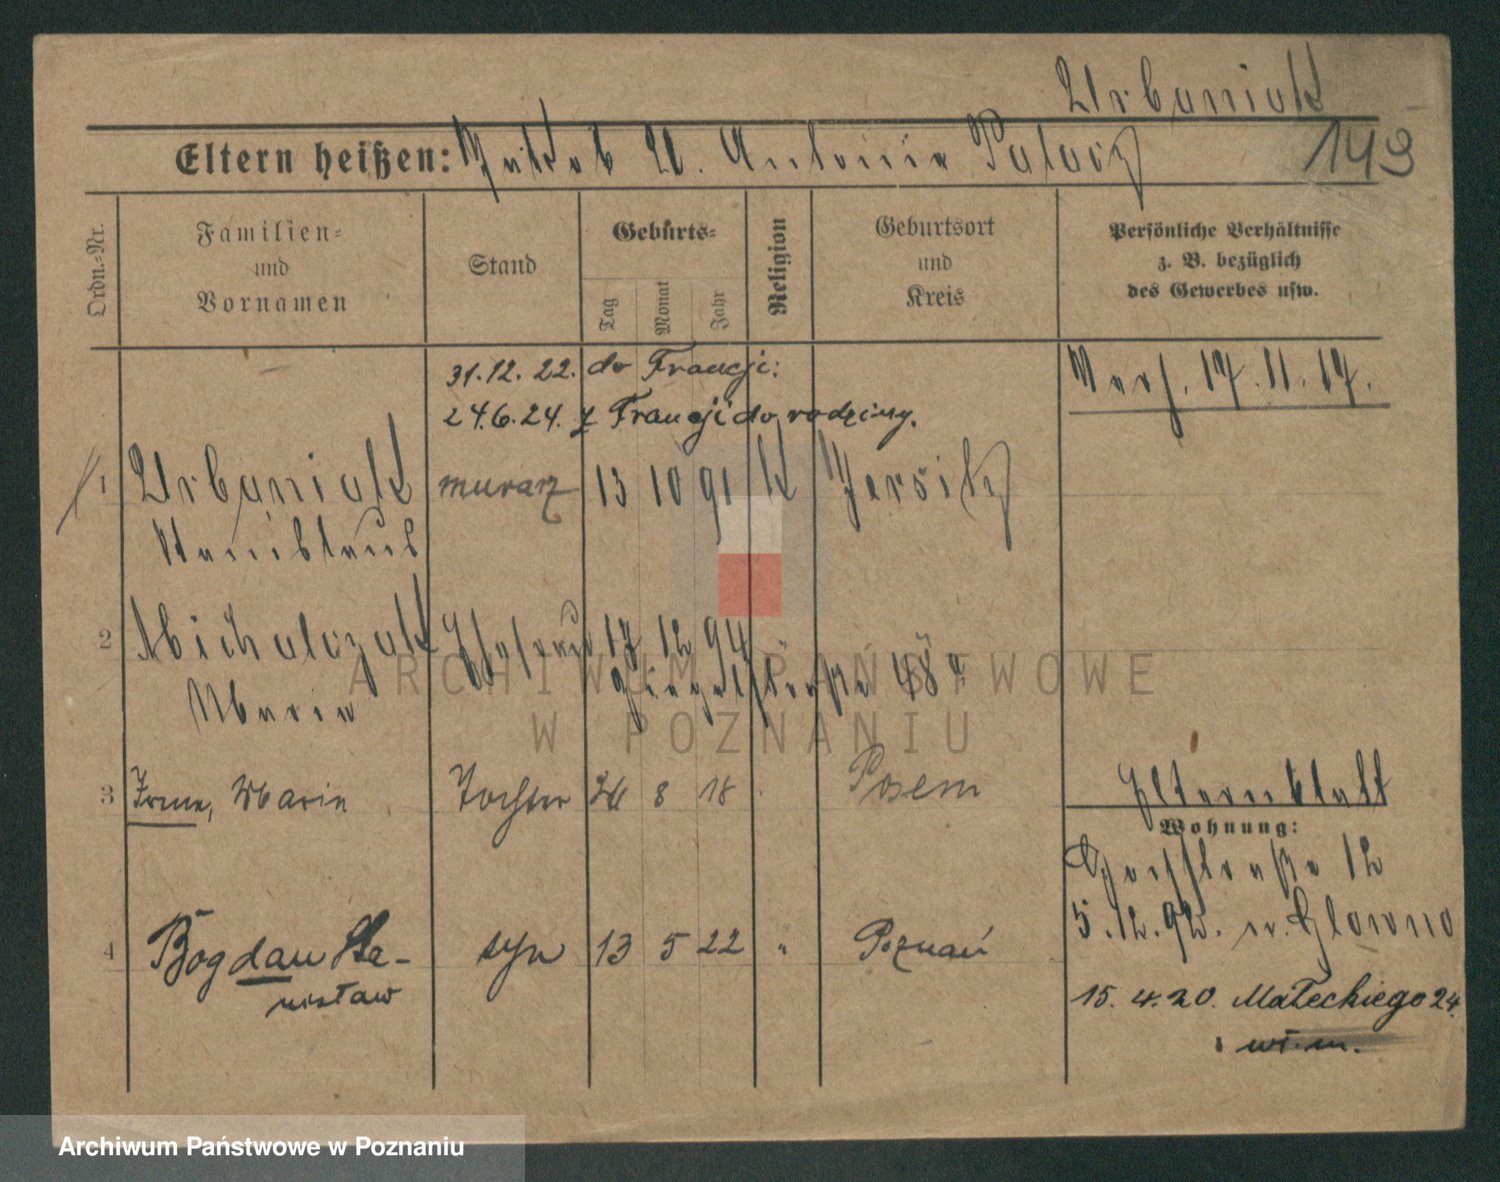 Urbaniak
Eltern heißen: Jakob U. Antonie Palacz
149
Ordn.-Nr.
Familien-
und
Vornamen
Stand
Geburts-
Tag
Monat
Jahr
Religion
Geburtsort
und
Kreis
Persönliche Verhältnisse
z. B. bezüglich
des Gewerbes usw.
31.12.22. do Francji:
24.6.24. z Francji do rodziny.
Verh. 17.11.17.
1 Urbaniak murarz 13 10 91 K Jersitz
Stanislaus
2 Michalczak Ehefrau 17 12 94
48a
Maria
3 Irene, Maria Tochter 26 8 18 Posen
Wohnung:
12
4 Bogdan Sta- syn 13 5 22 " Poznań
nisław
5.12.92. Glowno
15.4.20. Małeckiego 24.
wł. m.
ARCHIWUM PAŃSTWOWE
W POZNANIU
Archiwum Państwowe w Poznaniu